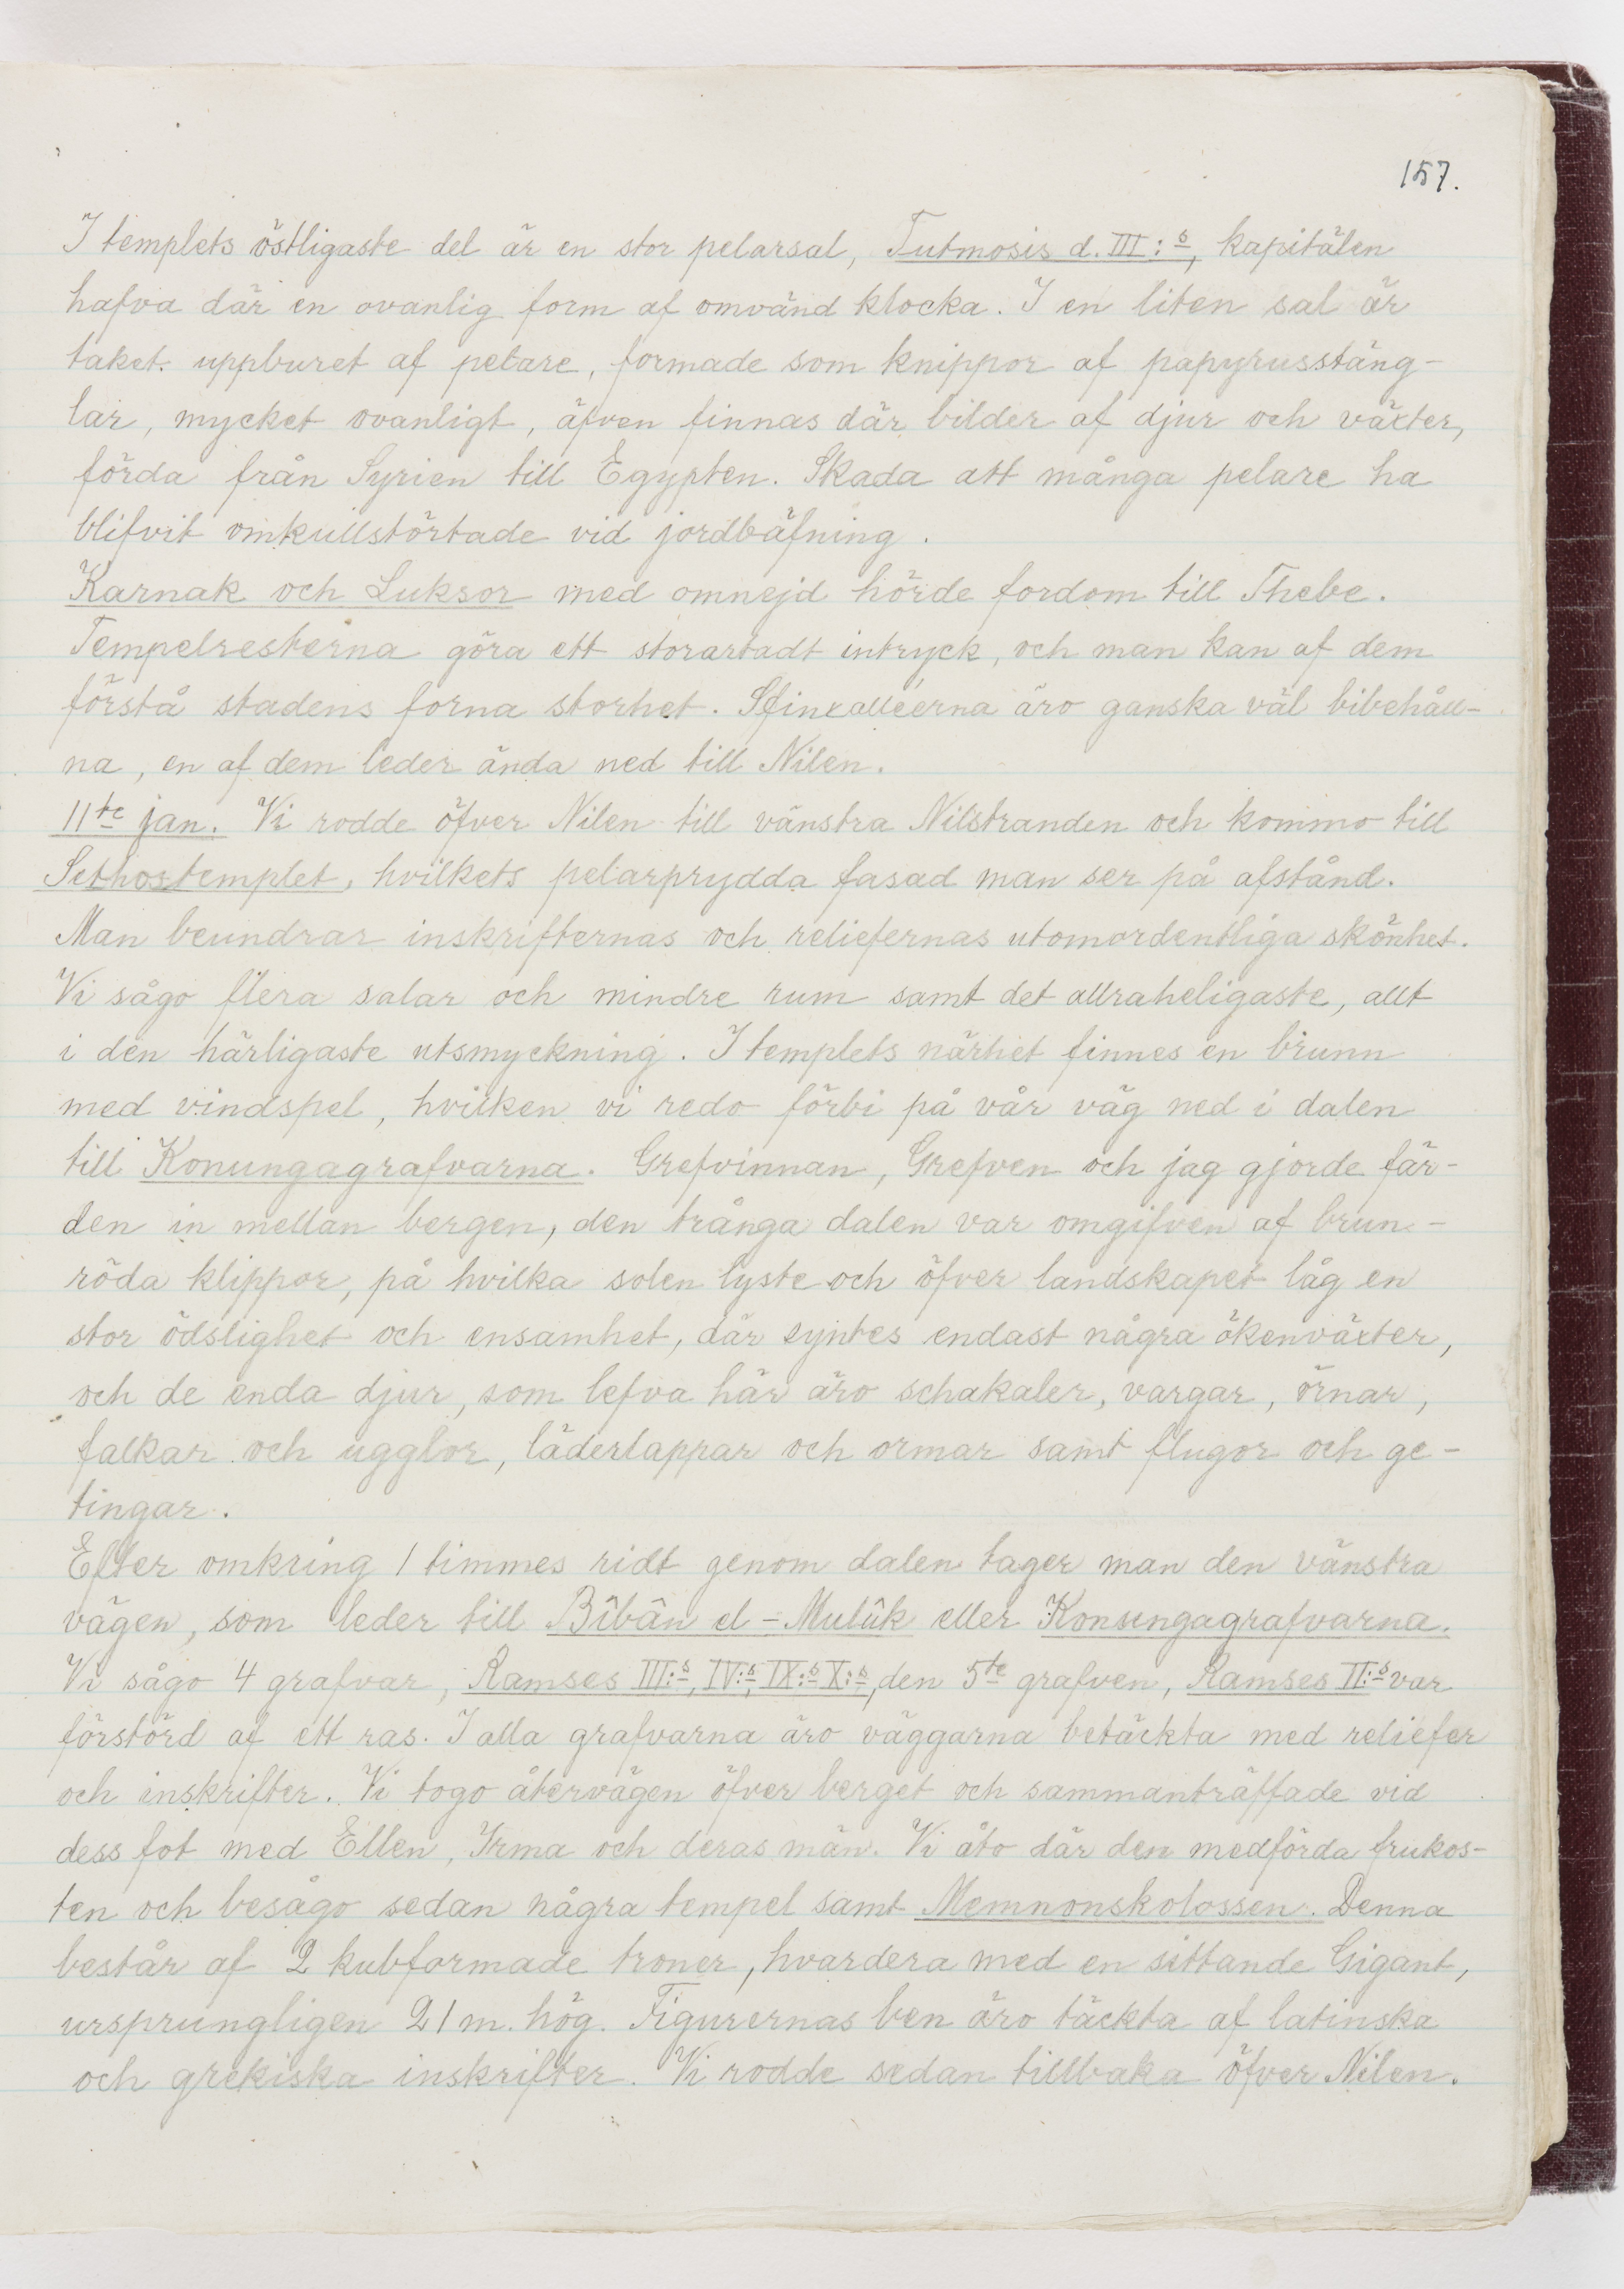 157.
I templets östligaste del är en stor pelarsal, Tutmosis d. III:s, kapitälen
hafva där en ovanlig form af omvänd klocka. I en liten sal är
taket uppburet af pelare, formade som knippor af papyrusstäng-
lar, mycket ovanligt, äfven finnas där bilder af djur och växter,
förda från Syrien till Egypten. Skada att många pelare ha
blifvit omkullstörtade vid jordbäfning.
Karnak och Luksor med omnejd hörde fordom till Thebe.
Tempelresterna göra ett storartadt intryck, och man kan af dem
förstå stadens forna storhet. Sfinxalléerna äro ganska väl bibehåll-
na, en af dem leder ända ned till Nilen.
11te jan. Vi rodde öfver Nilen till vänstra Nilstranden och kommo till
Sethostemplet, hvilkets pelarprydda fasad man ser på afstånd.
Man beundrar inskrifternas och reliefernas utomordentliga skönhet.
Vi sågo flera salar och mindre rum samt det allraheligaste, allt
i den härligaste utsmyckning. I templets närhet finnes en brunn
med vindspel, hvilken vi redo förbi på vår väg ned i dalen
till Konungagrafvarna. Grefvinnan, Grefven och jag gjorde fär-
den in mellan bergen, den trånga dalen var omgifven af brun-
röda klippor, på hvilka solen lyste och öfver landskapet låg en
stor ödslighet och ensamhet, där syntes endast några ökenväxter,
och de enda djur, som lefva här äro schakaler, vargar, örnar,
falkar och ugglor, läderlappar och ormar samt flugor och ge-
tingar.
Efter omkring 1 timmes ridt genom dalen tager man den vänstra
vägen, som leder till Bîbân el-Mulûk eller Konungagrafvarna.
Vi sågo 4 grafvar, Ramses III:s, IV:s, IX:s X:s, den 5te grafven, Ramses II:s var
förstörd af ett ras. I alla grafvarna äro väggarna betäckta med reliefer
och inskrifter. Vi togo återvägen öfver berget och sammanträffade vid
dess fot med Ellen, Irma och deras män. Vi åto där den medförda frukos-
ten och besågo sedan några tempel samt Memnonskolossen. Denna
består af 2 kubformade troner, hvardera med en sittande Gigant,
ursprungligen 21 m. hög. Figurernas ben äro täckta af latinska
och grekiska inskrifter. Vi rodde sedan tillbaka öfver Nilen.